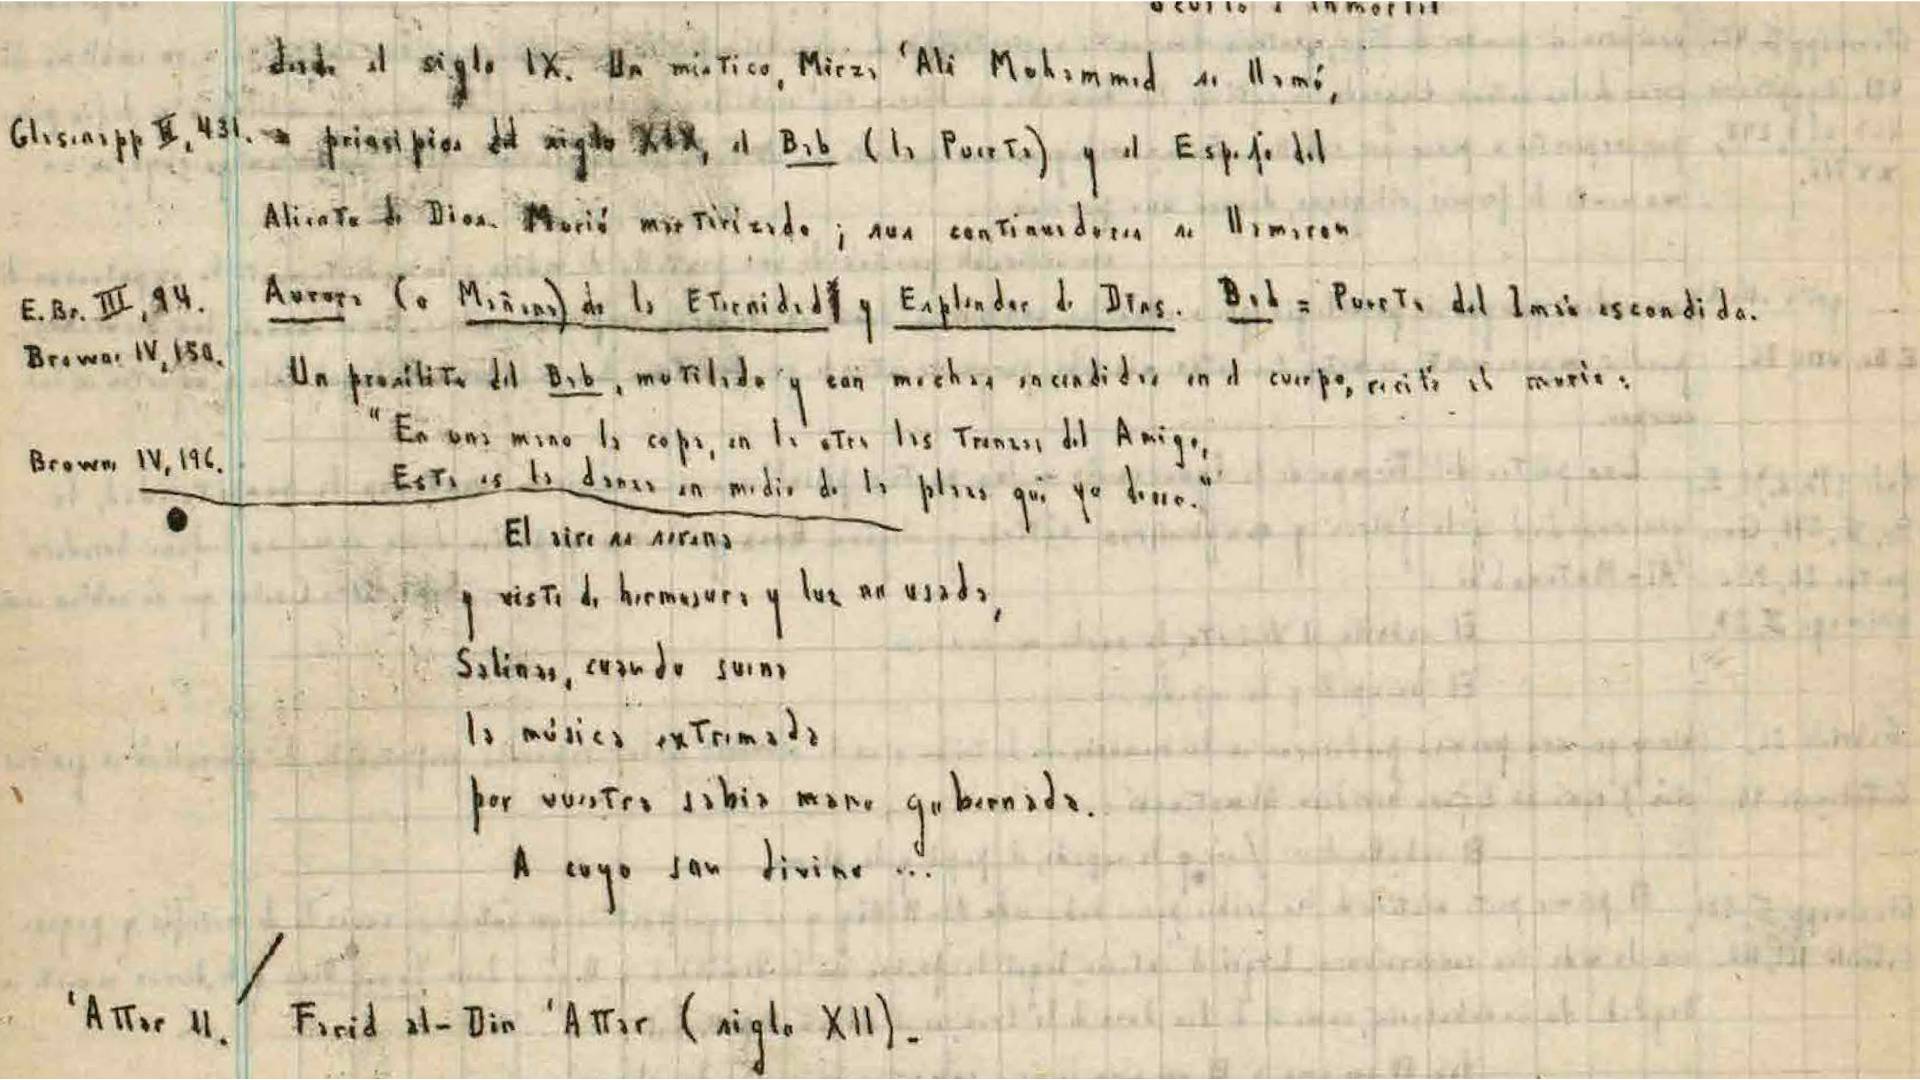 oculto e inmortal
desde el siglo IX. Un místico, Mirza ʻAli Mohammed se llamó,
Glasenapp II, 431. a principios del siglo XIX, el Bab (la Puerta) y el Espejo del
Aliento de Dios. Murió martirizado; sus continuadores se llamaron
E. Br. III, 94. Aurora (o Mañana) de la Eternidad y Esplendor de Dios. Bab = Puerta del Imán escondido.
Browne IV, 150. Un prosélito del Bab, mutilado y con mechas encendidas en el cuerpo, recitó al morir:
"En una mano la copa, en la otra las trenzas del Amigo,
Browne IV, 196. Esta es la danza en medio de la plaza que yo deseo."
El aire se serena
y viste de hermosura y luz no usada,
Salinas, cuando suena
la música extremada
por vuestra sabia mano gobernada.
A cuyo son divino ...
ʻAttar 11. Farid al-Din ʻAttar (siglo XII).-